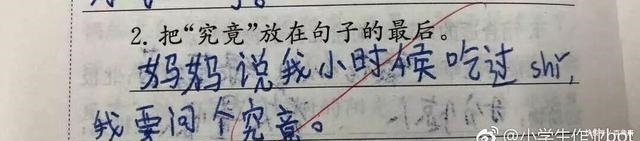 2. 把“究竟”放在句子的最后。
妈妈说我小时候吃过shi,
我要问个究竟。
@小学生作业bot